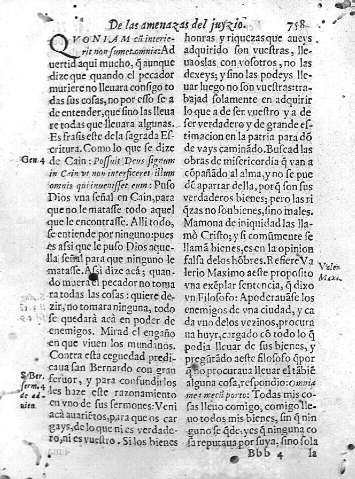 De las amenazas del juyzio. 758
QVONIAM cū interie-
rit non sumet omnia: Ad
uertid aqui mucho, q̄ aunque
dize que quando el pecador
muriere no lleuara consigo to
das sus cosas, no por esso se a
de entender, que sino las lleua
re todas que lleuara algunas.
Es frasis este de la sagrada Es
critura. Como lo que se dize
de Cain: Possuit Deus signum
in Cain vt non interficeret illum
omnis qui inuenisset eum: Puso
Dios vna señal en Cain, para
que no le matasse todo aquel
que le encontrasse. Alli todo,
se entiende por ninguno: pues
es assi que le puso Dios aque-
lla señal para que ninguno le
matasse. Assi dize acá; quan-
do muera el pecador no toma
ra todas las cosas: quiere de-
zir, no tomara ninguna, todo
se quedará acà en poder de
enemigos. Mirad el engaño
en que viuen los mundanos.
Contra esta ceguedad predi-
caua san Bernardo con gran
feruor, y para confundirlos
les haze este razonamiento
en vno de sus sermones: Veni
acá auarietos, para que os car
gays, de lo que ni es verdade-
ro, ni es vuestro. Si los bienes
Gen. 4
S. Ber.
serm. 4
de ad-
uien.
honras y riquezas que aueys
adquirido son vuestras, lle-
uaoslas con vosotros, no las
dexeys; y sino las podeys lle-
uar luego no son vuestras: tra-
bajad solamente en adquirir
lo que a de ser vuestro y a de
ser verdadero y de grande es-
timacion en la patria para dō
de vays caminādo. Buscad las
obras de misericordia q̄ van a
cōpañādo al alma, y no se pue
dē apartar della, porq̄ son sus
verdaderos bienes; pero las ri
q̄zas no son bienes, sino males.
Mamona de iniquidad las lla-
mó Cristo; y si comūmente se
llamā bienes, es en la opinion
falsa de los hōbres. Refiere Va
lerio Maximo a este proposito
vna exēplar sentencia, q̄ dixo
vn Filosofo: Apoderauāse los
enemigos de vna ciudad, y ca
da vno de los vezinos, procura
ua huyr, cargado cō todo lo q̄
podia lleuar de sus bienes, y
pregūtādo a este filosofo q̄ por
q̄ no procuraua lleuar el tābiē
alguna cosa, respondio: omnia
mea mecū porto: Todas mis co
sas lleuo comigo, comigo lleuo
todos mis bienes, sin q̄ nin
guno se q̄de: y es q̄ ninguna co
sa reputaua por suya, sino sola
Valer.
Maxi.
Bbb 4 la